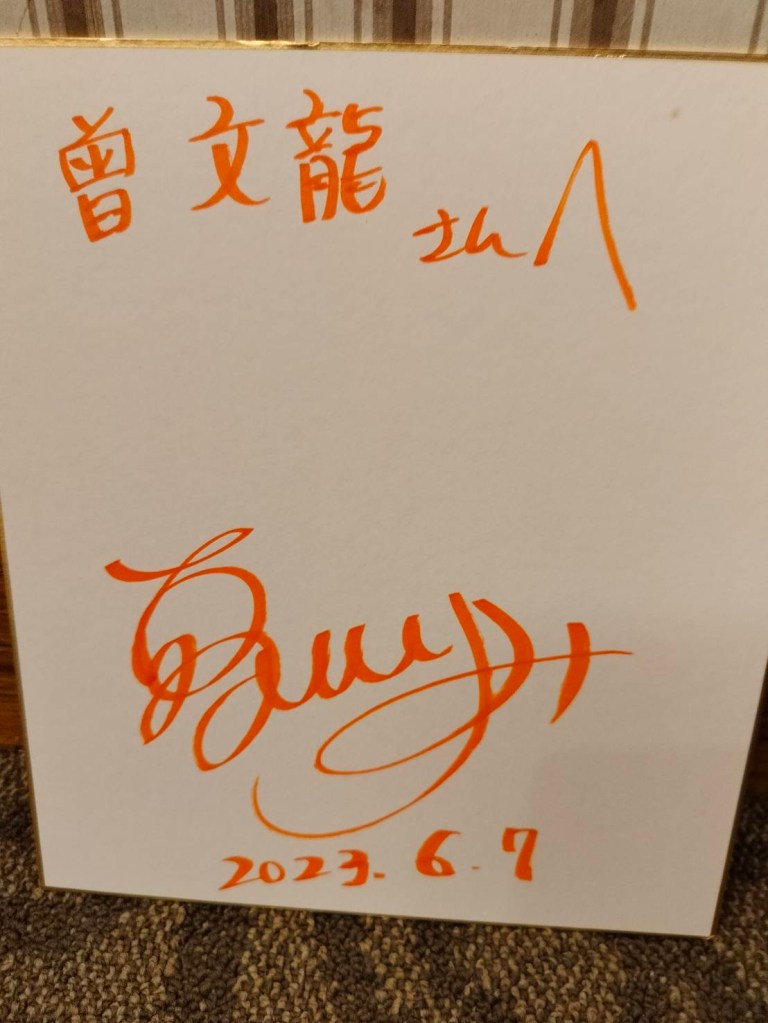 曽文龍さんへ
2023.6.7